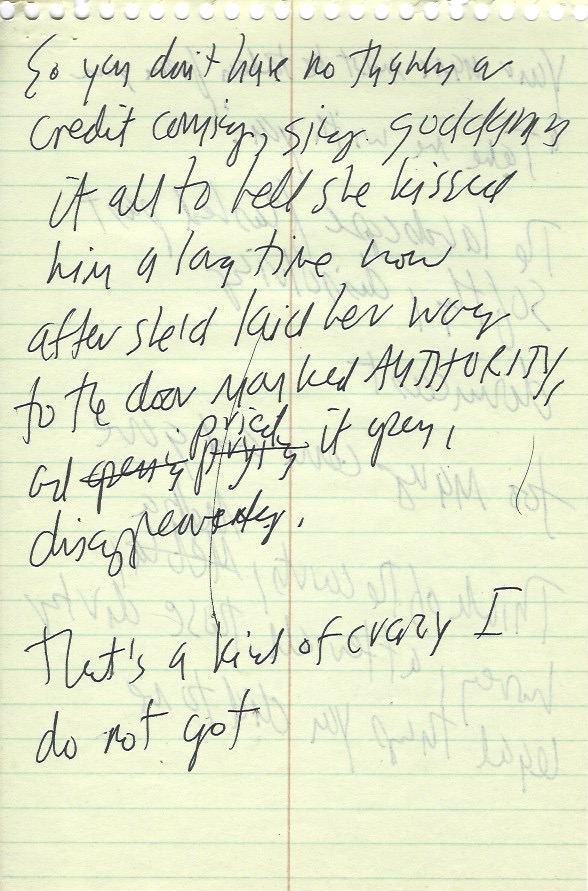 So you don't have no thanks or
credit coming, sing goddamns
it all to hell she kissed
him a long time now
after she'd laid her way
to the door marked AUTHORITY,
pried
and opening prying it open,
disappeared.
That's a kind of crazy I
do not got